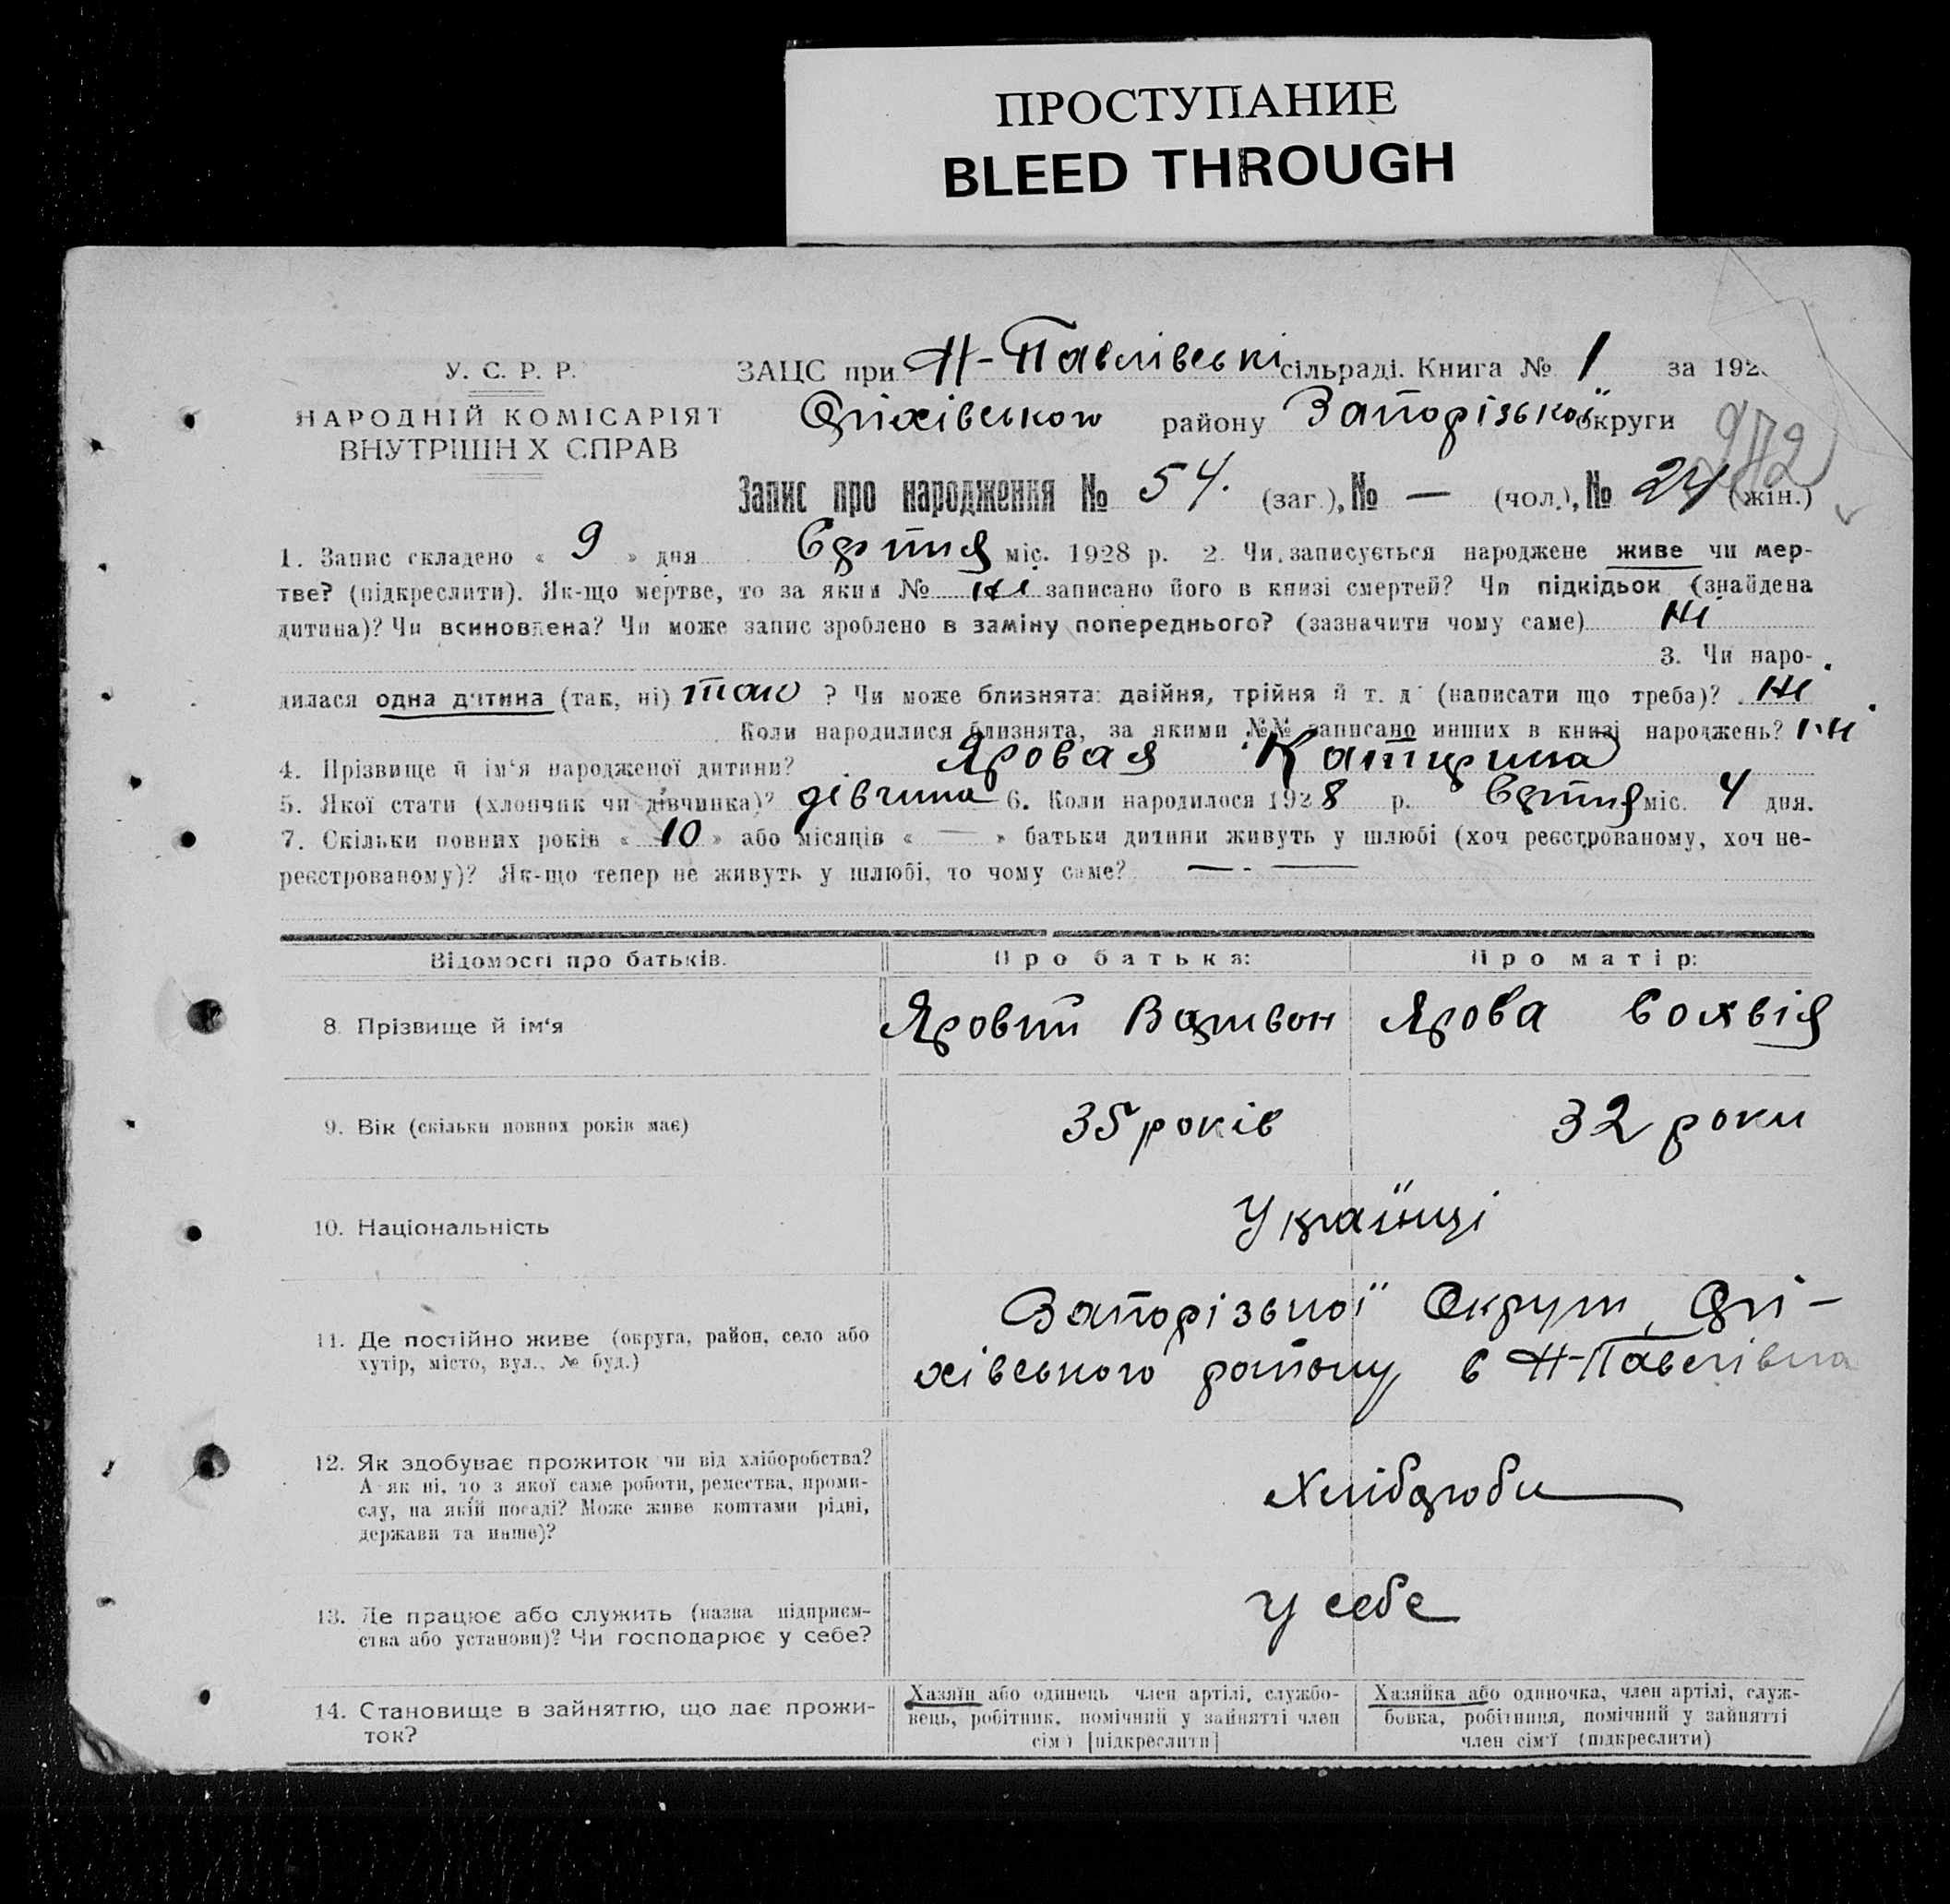 ПРОСТУПАНИЕ
BLEED THROUGH
У. С. Р. Р.
НАРОДНІЙ КОМІСАРІЯТ
ВНУТРІШН Х СПРАВ
ЗАЦС при Н-Павлівські сільраді. Книга № 1 за 192
Оріхівського району Запорізької округи
942
Запис про народження № 54. (заг.), № — (чол.), № 24 (жін.)
1. Запис складено « 9 » дня міс. 1928 р. 2. Чи записується народжене живе чи мер-
тве? (підкреслити). Як-що мертве, то за яким № ні записано його в книзі смертей? Чи підкідьок (знайдена
дитина)? Чи всиновлена? Чи може запис зроблено в заміну попереднього? (зазначити чому саме) Ні
3. Чи наро-
дилася одна дитина (так, ні) так ? Чи може близнята: двійня, трійня й т. д (написати що треба)? Ні
Коли народилися близнята, за якими №№ записано инших в книзі народжень? Ні
4. Прізвище й ім'я народженої дитини? Яровая Катирина
5. Якої стати (хлопчик чи дівчинка)? дівчина 6. Коли народилося 1928 р. міс. 4 дня.
7. Скільки повних років « 10 » або місяців « — » батьки дитини живуть у шлюбі (хоч реєстрованому, хоч не-
реєстрованому)? Як-що тепер не живуть у шлюбі, то чому саме? — - —
Відомості про батьків. Про батька: Про матір:
8. Прізвище й ім'я Яровий Ярова
9. Вік (скільки повних років має) 35 років 32 роки
10. Національність Українці
11. Де постійно живе (округа, район, село або
хутір, місто, вул., № буд.)
Запорізької Округи, Орі-
хівського району в Н-Павлівка
12. Як здобуває прожиток чи від хліборобства?
А як ні, то з якої саме роботи, ремества, проми-
слу, на якій посаді? Може живе коштами рідні,
держави та инше)?
Хлібороби
13. Де працює або служить (назва підприєм-
ства або установи)? Чи господарює у себе?
У себе
14. Становище в зайняттю, що дає прожи-
ток?
Хазяїн або одинець член артілі, службо-
вець, робітник, помічний у зайнятті член
сім'ї [підкреслити]
Хазяйка або одиночка, член артілі, служ-
бовка, робітниця, помічний у зайнятті
член сім'ї (підкреслити)